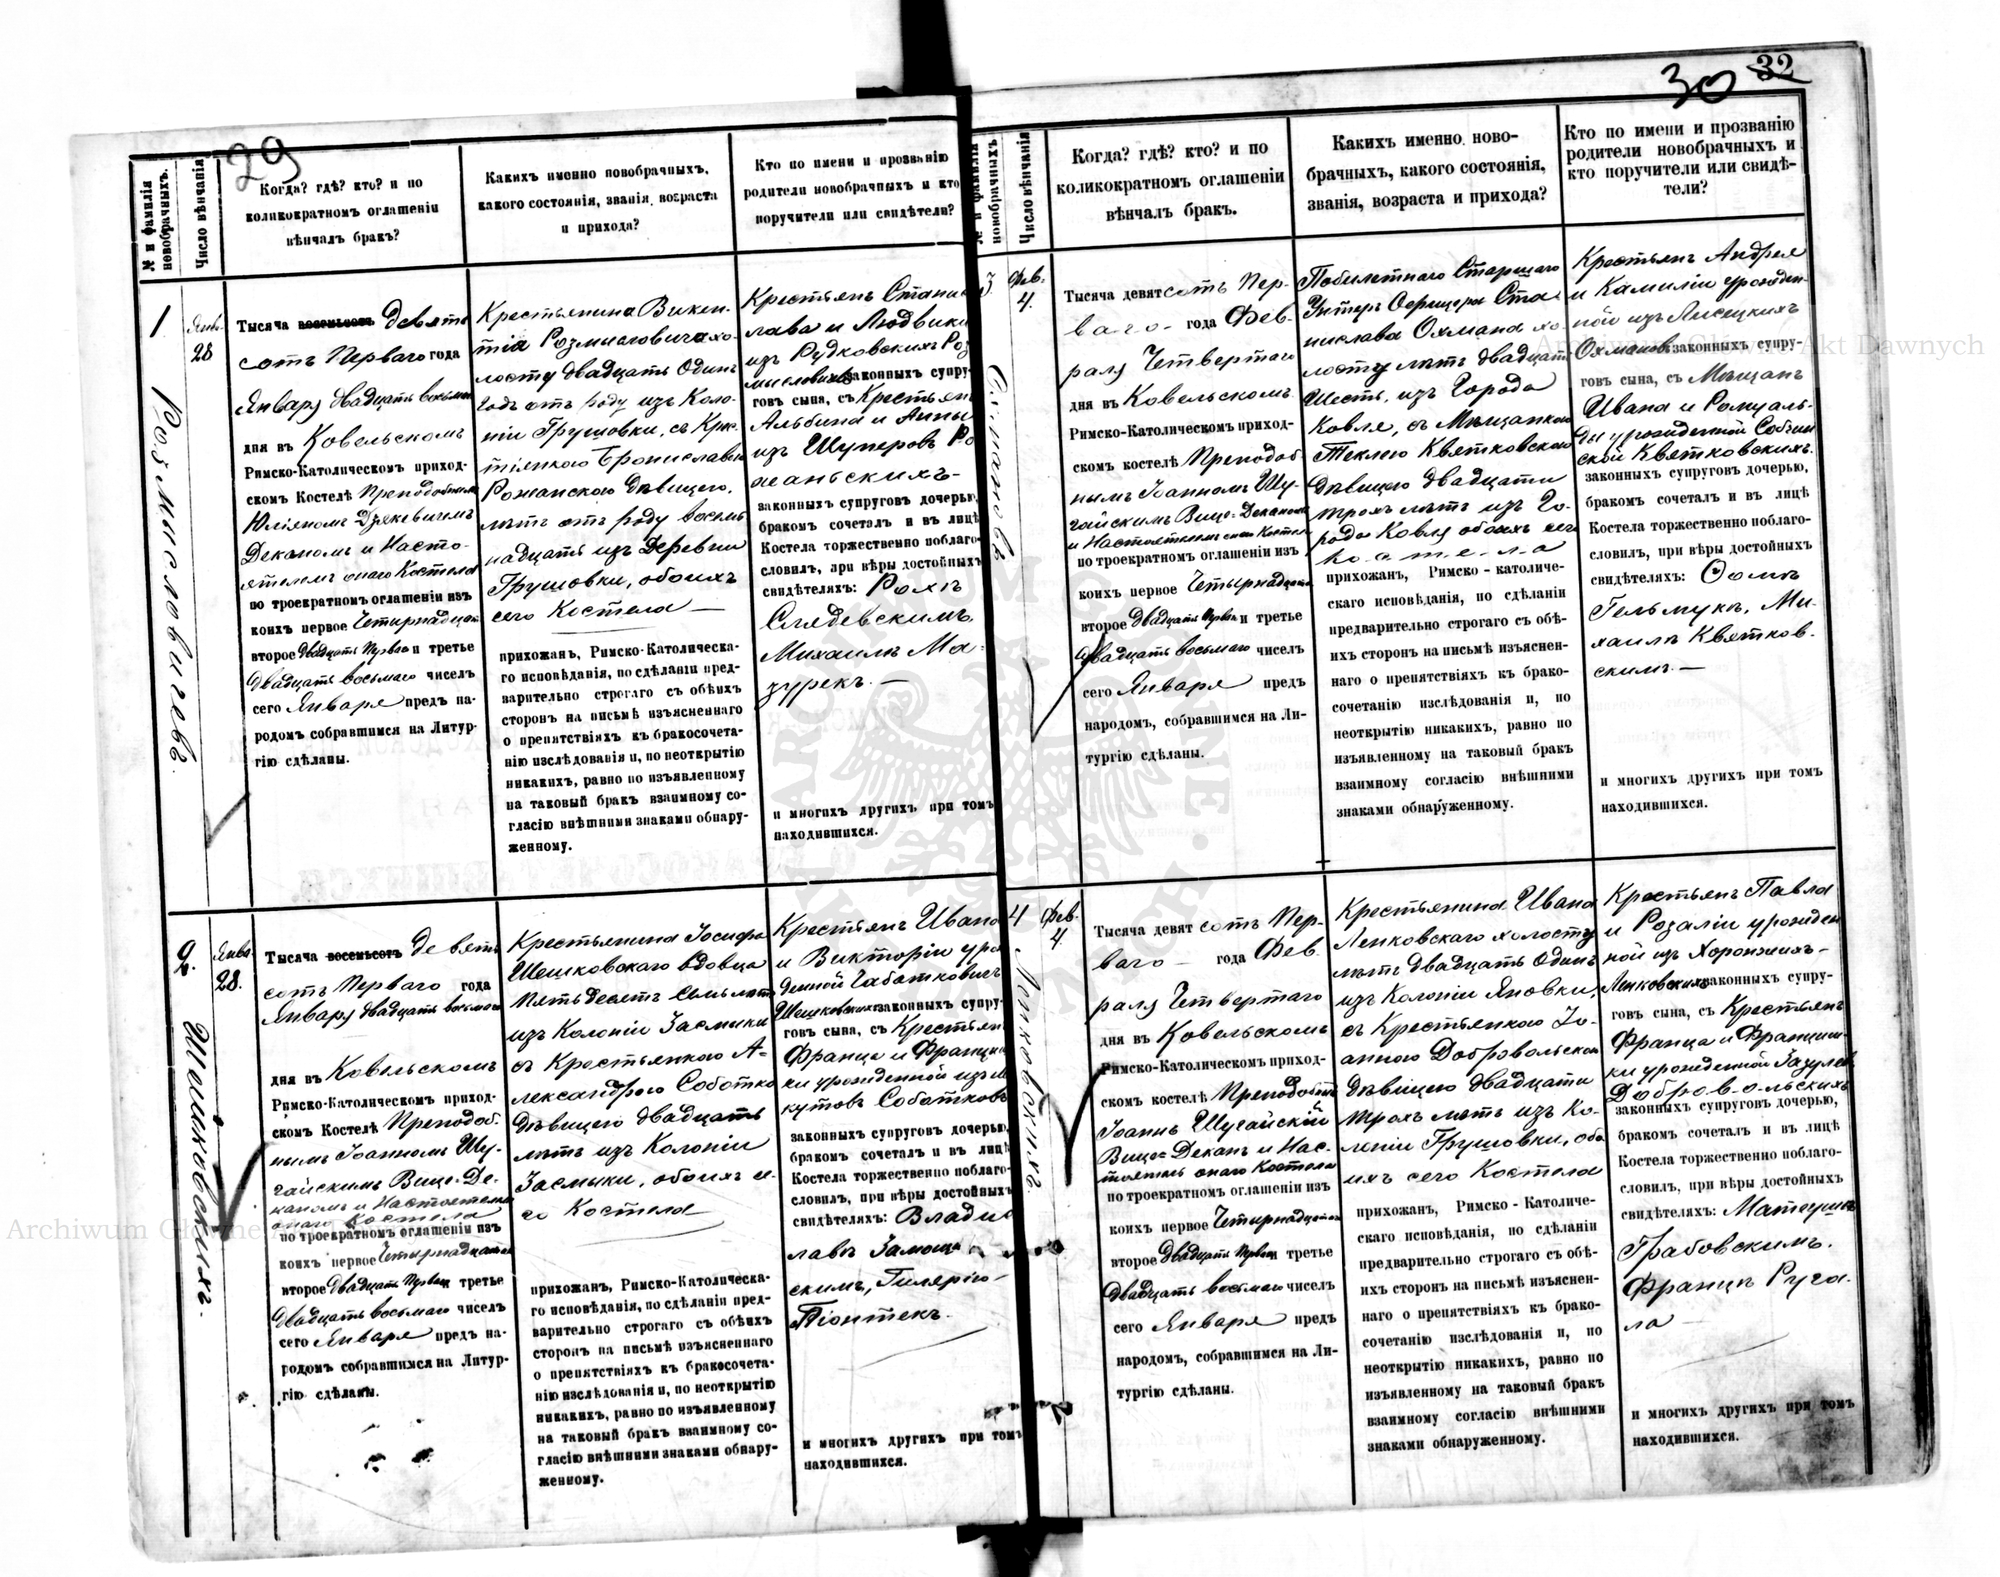 29
№ и фамилія новобрачныхъ.
Число вѣнчанія
Когда? гдѣ? кто? и по
коликократномъ оглашеніи
вѣнчалъ бракъ?
Какихъ именно новобрачныхъ,
какого состоянія, званія, возраста
и прихода?
Кто по имени и прозванію
родители новобрачныхъ и кто
поручители или свидѣтели?
1
Янв.
28
Розмысловичевъ.
Тысяча восемьсотъ девять
сотъ Перваго года
Января двадцать восьмаго
дня въ Ковельскомъ
Римско-Католическомъ приход-
скомъ Костелѣ Преподобнымъ
Юліяномъ Дзякевичемъ
Деканомъ и Насто-
ятелемъ онаго Костела
по троекратномъ оглашеніи изъ
коихъ первое Четырнадцат
второе двадцать Перваго и третье
двадцать восьмаго чиселъ
сего Января предъ на-
родомъ собравшимся на Литур-
гію сдѣланы.
Крестьянина Викен-
тія Розмысловича хо-
лосту двадцать Одинъ
годъ отъ роду изъ Коло-
ніи Грушовки, съ Крес-
тьянкою Брониславою
Рожанскою дѣвицею,
лѣтъ отъ роду восемь
надцать изъ Деревни
Грушовки, обоихъ
сего Костела —
прихожанъ, Римско-Католическа-
го исповѣданія, по сдѣланіи пред-
варительно строгаго съ обѣихъ
сторонъ на письмѣ изъясненнаго
о препятствіяхъ къ бракосочета-
нію изслѣдованія и, по неоткрытію
никакихъ, равно по изъявленному
на таковый бракъ взаимному со-
гласію внѣшними знаками обнару-
женному.
Крестьянъ Станис
лава и Людвики
изъ Рудковскихъ Роз
мысловичевъ законныхъ супру-
говъ сына, съ Крестьян
Альбина и Анны
изъ Шуперовъ Ро
жанскихъ—
законныхъ супруговъ дочерью,
бракомъ сочеталъ и въ лицѣ
Костела торжественно поблаго-
словилъ, при вѣры достойныхъ
свидѣтеляхъ: Рохъ
Слядевскимъ,
Михаилъ Ма-
зурекъ. —
и многихъ другихъ при томъ
находившихся.
2.
Янва
28.
Шешковскихъ.
Тысяча восемьсотъ девять
сотъ Перваго года
Января двадцать восьмаго
дня въ Ковельскомъ
Римско-Католическомъ приход-
скомъ Костелѣ Преподоб-
нымъ Іоанномъ Шу-
гайскимъ Вице-Де-
каномъ и Настоятелемъ
онаго Костела
по троекратномъ оглашеніи изъ
коихъ первое Четырнадцатаго
второе двадцать Перваго третье
двадцать восьмаго чиселъ
сего Января предъ на-
родомъ собравшимся на Литур-
гію сдѣланы.
Крестьянина Іосифа
Шешковскаго вдовца
пять десятъ семь лѣтъ
изъ Колоніи Засмыки
съ Крестьянкою А-
лександрою Соботко
дѣвицею двадцать
лѣтъ изъ Колоніи
Засмыки, обоихъ се-
го Костела
прихожанъ, Римско-Католическа-
го исповѣданія, по сдѣланіи пред-
варительно строгаго съ обѣихъ
сторонъ на письмѣ изъясненнаго
о препятствіяхъ къ бракосочета-
нію изслѣдованія и, по неоткрытію
никакихъ, равно по изъявленному
на таковый бракъ взаимному со-
гласію внѣшними знаками обнару-
женному.
Крестьянъ Ивана
и Викторіи уро
денной Габатковичъ
Шешковскихъ законныхъ супру-
говъ сына, съ Крестьян
Франца и Францишк
ки урожденной изъ
кутовъ Соботковъ
законныхъ супруговъ дочерью,
бракомъ сочеталъ и въ лицѣ
Костела торжественно поблаго-
словилъ, при вѣры достойныхъ
свидѣтеляхъ: Владис
лавъ Замощ
скимъ, Гиляріо—
Піонтекъ.
и многихъ другихъ при томъ
находившихся.
30 32
№ и фамилія новобрачныхъ
Число вѣнчанія
Когда? гдѣ? кто? и по
коликократномъ оглашеніи
вѣнчалъ бракъ.
Какихъ именно ново-
брачныхъ, какого состоянія,
званія, возраста и прихода?
Кто по имени и прозванію
родители новобрачныхъ и
кто поручители или свидѣ-
тели?
3
Фев.
4.
Охмановъ
Тысяча девятсотъ Пер-
ваго— года Фев-
раля Четвертаго
дня въ Ковельскомъ
Римско-Католическомъ приход-
скомъ костелѣ Преподоб-
нымъ Іоанномъ Шу-
гайскимъ Вице-Деканомъ
и Настоятелемъ онаго Костела
по троекратномъ оглашеніи изъ
коихъ первое Четырнадцатаго
второе двадцать Перваго и третье
двадцать восьмаго чиселъ
сего Января предъ
народомъ, собравшимся на Ли-
тургію сдѣланы.
Побилетнаго Старшаго
Унтеръ Офицера Ста-
нислава Охмана хо-
лосту лѣтъ двадцать
Шесть, изъ Города
Ковля, съ Мѣщанкою
Теклею Квятковскою
дѣвицею двадцати
трохъ лѣтъ изъ Го-
рода Ковля обоихъ сего
Костела
прихожанъ, Римско-католиче-
скаго исповѣданія, по сдѣланіи
предварительно строгаго съ обѣ-
ихъ сторонъ на письмѣ изъяснен-
наго о препятствіяхъ къ брако-
сочетанію изслѣдованія и, по
неоткрытію никакихъ, равно по
изъявленному на таковый бракъ
взаимному согласію внѣшними
знаками обнаруженному.
Крестьянъ Андрея
и Камиліи урожден-
ной изъ Лисецкихъ
Охмановъ законныхъ супру-
говъ сына, съ Мѣщанъ
Ивана и Ромуаль-
ды урожденной Собѣин
ской Квятковскихъ.
законныхъ супруговъ дочерью,
бракомъ сочеталъ и въ лицѣ
Костела торжественно поблаго-
словилъ, при вѣры достойныхъ
свидѣтеляхъ: Ѳомъ
Гельмукъ, Ми-
хаилъ Квятков-
скимъ.—
и многихъ другихъ при томъ
находившихся.
4
Фев.
4.
Лепковскихъ.
Тысяча девят сотъ Пер-
ваго— года Фев.
раля Четвертаго
дня въ Ковельскомъ
Римско-Католическомъ приход-
скомъ костелѣ Преподобный
Іоаннъ Шугайскій
Вице-Деканъ и Нас-
тоятель онаго Костела
по троекратномъ оглашеніи изъ
коихъ первое Четырнадцатаго
второе двадцать Перваго третье
двадцать восьмаго чиселъ
сего Января предъ
народомъ, собравшимся на Ли-
тургію сдѣланы.
Крестьянина Ивана
Лепковскаго холосту
лѣтъ двадцать Одинъ
изъ Колоніи Яновки,
съ Крестьянкою Іо-
анною Добровольскою
дѣвицею двадцати
трохъ лѣтъ изъ Ко-
лоніи Грушовки, обо
ихъ сего Костела
прихожанъ, Римско-Католиче-
скаго исповѣданія, по сдѣланіи
предварительно строгаго съ обѣ-
ихъ сторонъ на письмѣ изъяснен-
наго о препятствіяхъ къ брако-
сочетанію изслѣдованія и, по
неоткрытію никакихъ, равно по
изъявленному на таковый бракъ
взаимному согласію внѣшними
знаками обнаруженному.
Крестьянъ Павла
и Розаліи урожден
ной изъ Хоронжихъ—
Лепковскихъ законныхъ супру-
говъ сына, съ Крестьянъ
Франца и Францишк-
ки урожденной
Добровольскихъ
законныхъ супруговъ дочерью,
бракомъ сочеталъ и въ лицѣ
Костела торжественно поблаго-
словилъ, при вѣры достойныхъ
свидѣтеляхъ: Матеушъ
Грабовскимъ.
Францъ Руга-
ла—
и многихъ другихъ при томъ
находившихся.
Archiwum Główne Akt Dawnych